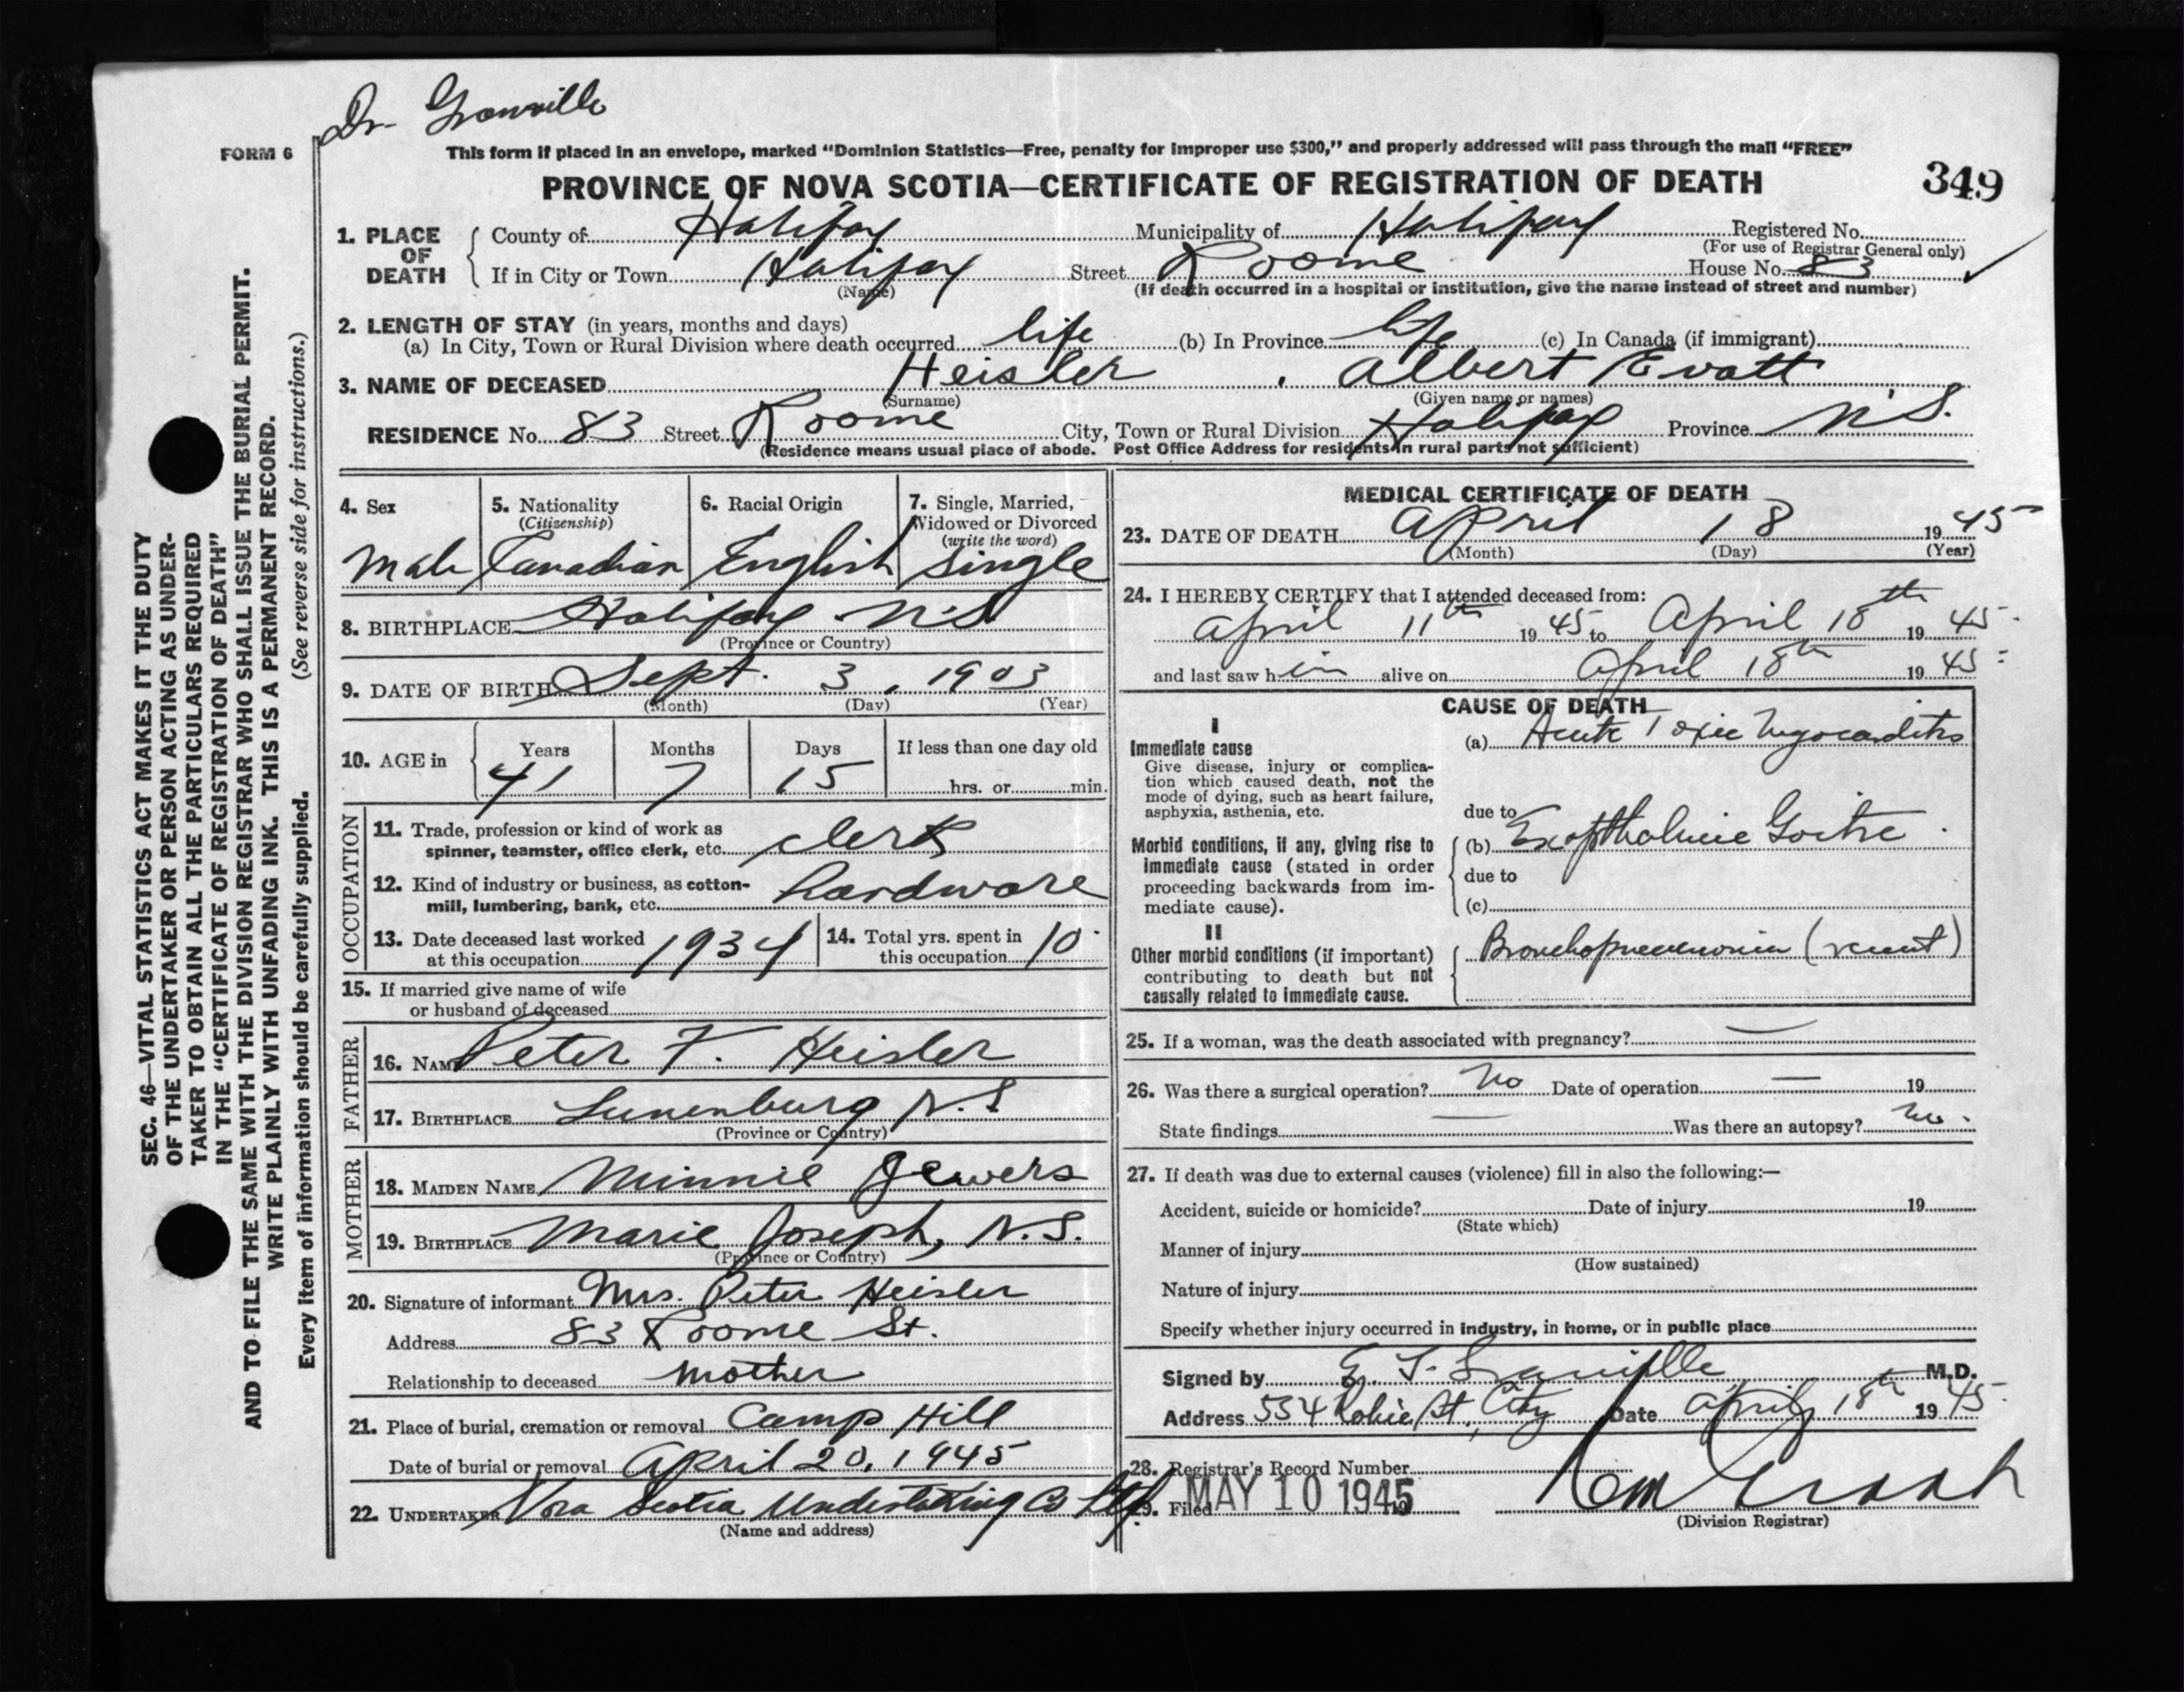 Dr. Granville
FORM 6
This form if placed in an envelope, marked “Dominion Statistics—Free, penalty for improper use $300,” and properly addressed will pass through the mail “FREE”
PROVINCE OF NOVA SCOTIA—CERTIFICATE OF REGISTRATION OF DEATH
349
1. PLACE OF DEATH
County of Halifax Municipality of Halifax Registered No.
(For use of Registrar General only)
If in City or Town Halifax Street Roome House No. 83
(Name)
(If death occurred in a hospital or institution, give the name instead of street and number)
2. LENGTH OF STAY (in years, months and days)
(a) In City, Town or Rural Division where death occurred life (b) In Province life (c) In Canada (if immigrant)
3. NAME OF DECEASED Heisler, Albert Evatt
(Surname) (Given name or names)
RESIDENCE No. 83 Street Roome City, Town or Rural Division Halifax Province N.S.
(Residence means usual place of abode. Post Office Address for residents in rural parts not sufficient)
4. Sex
Male
5. Nationality
(Citizenship)
Canadian
6. Racial Origin
English
7. Single, Married,
Widowed or Divorced
(write the word)
Single
8. BIRTHPLACE Halifax N.S.
(Province or Country)
9. DATE OF BIRTH Sept. 3, 1903
(Month) (Day) (Year)
10. AGE in
Years Months Days If less than one day old
41 7 15 hrs. or min.
OCCUPATION
11. Trade, profession or kind of work as
spinner, teamster, office clerk, etc. clerk
12. Kind of industry or business, as cotton-
mill, lumbering, bank, etc. hardware
13. Date deceased last worked
at this occupation 1934
14. Total yrs. spent in
this occupation 10
15. If married give name of wife
or husband of deceased
FATHER
16. NAME Peter F. Heisler
17. BIRTHPLACE Lunenburg N.S
(Province or Country)
MOTHER
18. MAIDEN NAME Minnie Jewers
19. BIRTHPLACE Marie Joseph, N.S.
(Province or Country)
20. Signature of informant Mrs. Peter Heisler
Address 83 Roome St.
Relationship to deceased mother
21. Place of burial, cremation or removal Camp Hill
Date of burial or removal April 20, 1945
22. UNDERTAKER Nova Scotia Undertaking Co Ltd.
(Name and address)
MEDICAL CERTIFICATE OF DEATH
23. DATE OF DEATH April 18 1945
(Month) (Day) (Year)
24. I HEREBY CERTIFY that I attended deceased from:
April 11th 1945 to April 18th 1945
and last saw him alive on April 18th 1945
CAUSE OF DEATH
I
Immediate cause
Give disease, injury or complica-
tion which caused death, not the
mode of dying, such as heart failure,
asphyxia, asthenia, etc.
(a) Acute Toxic Myocarditis
due to
Morbid conditions, if any, giving rise to
immediate cause (stated in order
proceeding backwards from im-
mediate cause).
(b) Exopthalmic Goitre
due to
(c)
II
Other morbid conditions (if important)
contributing to death but not
causally related to immediate cause.
Bronchopneumonia (recent)
25. If a woman, was the death associated with pregnancy? —
26. Was there a surgical operation? No Date of operation — 19
State findings — Was there an autopsy? No.
27. If death was due to external causes (violence) fill in also the following:—
Accident, suicide or homicide? Date of injury 19
(State which)
Manner of injury
(How sustained)
Nature of injury
Specify whether injury occurred in industry, in home, or in public place
Signed by E. T. Granville M.D.
Address 554 Robie St, City Date April 18th 1945
28. Registrar's Record Number
29. Filed MAY 10 1945 19
(Division Registrar)
SEC. 46—VITAL STATISTICS ACT MAKES IT THE DUTY
OF THE UNDERTAKER OR PERSON ACTING AS UNDER-
TAKER TO OBTAIN ALL THE PARTICULARS REQUIRED
IN THE “CERTIFICATE OF REGISTRATION OF DEATH”
AND TO FILE THE SAME WITH THE DIVISION REGISTRAR WHO SHALL ISSUE THE BURIAL PERMIT.
WRITE PLAINLY WITH UNFADING INK. THIS IS A PERMANENT RECORD.
Every item of information should be carefully supplied. (See reverse side for instructions.)